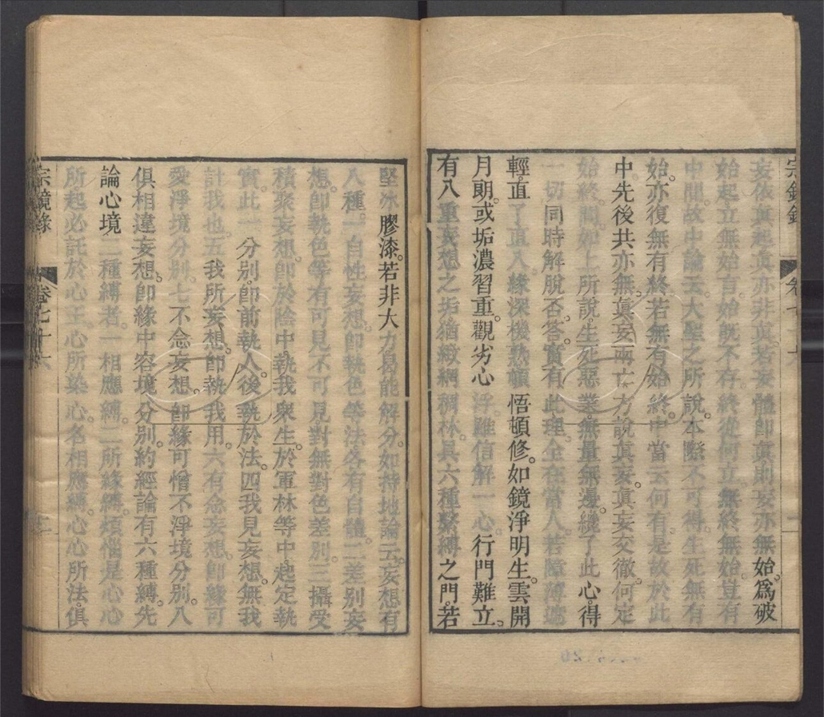 宗鏡錄
妄依眞起眞亦非眞若妄體卽眞則妄亦無始爲破
始起立無始言始旣不存終從何立無終無始豈有
中間故中論云大聖之所說本際不可得生死無有
始亦復無有終若無有始終中當云何有是故於此
中先後共亦無眞妄兩亡方說眞妄眞妄交徹何定
始終問如上所說生死惡業無量無邊纔了此心得
一切同時解脫否答實有此理全在當人若障薄遮
輕直了直入緣深機熟頓悟頓修如鏡淨明生雲開
月朗或垢濃習重觀劣心浮雖信解一心行門難立
有八重妄想之垢猶緻網稠林具六種繫縛之門若
堅冰膠漆若非大力易能解分如持地論云妄想有
八種一自性妄想卽執色等法各有自體二差別妄
想卽執色等有可見不可見對無對色差別三攝受
積聚妄想卽於陰中執我衆生於軍林等中起定執
實此一分別卽前執人後執於法四我見妄想無我
計我也五我所妄想卽執我用六有念妄想卽緣可
愛淨境分別七不念妄想卽緣可憎不淨境分別八
俱相違妄想卽緣中容境分別約經論有六種縛先
論心境二種縛者一相應縛二所緣縛煩惱是心心
所起必託於心王心所染心名相應縛心心所法俱
宗鏡錄 卷七十六